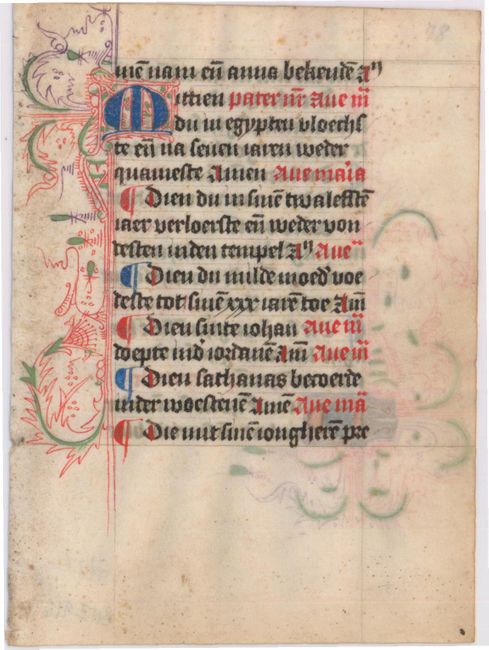 men nam eñ anna bekende A͞
Mittien pater nr̄ Aue m̄
du in egypten vloechs
te eñ na seuen iaren weder
quameste Amen Aue maia
Dien du in sinē twalefstē
iaer verloerste eñ weder von
desten inden tempel A͞ Aue
Dien du milde moed' voe
deste tot sinē xxx iarē toe Am̄
Dien sinte iohan Aue m̄
doepte ind' iordanē Am̄ Aue m̄
Dien sathanas becoerde
inder woestenē Amē Aue mā
Die mit sinē iongherē pre